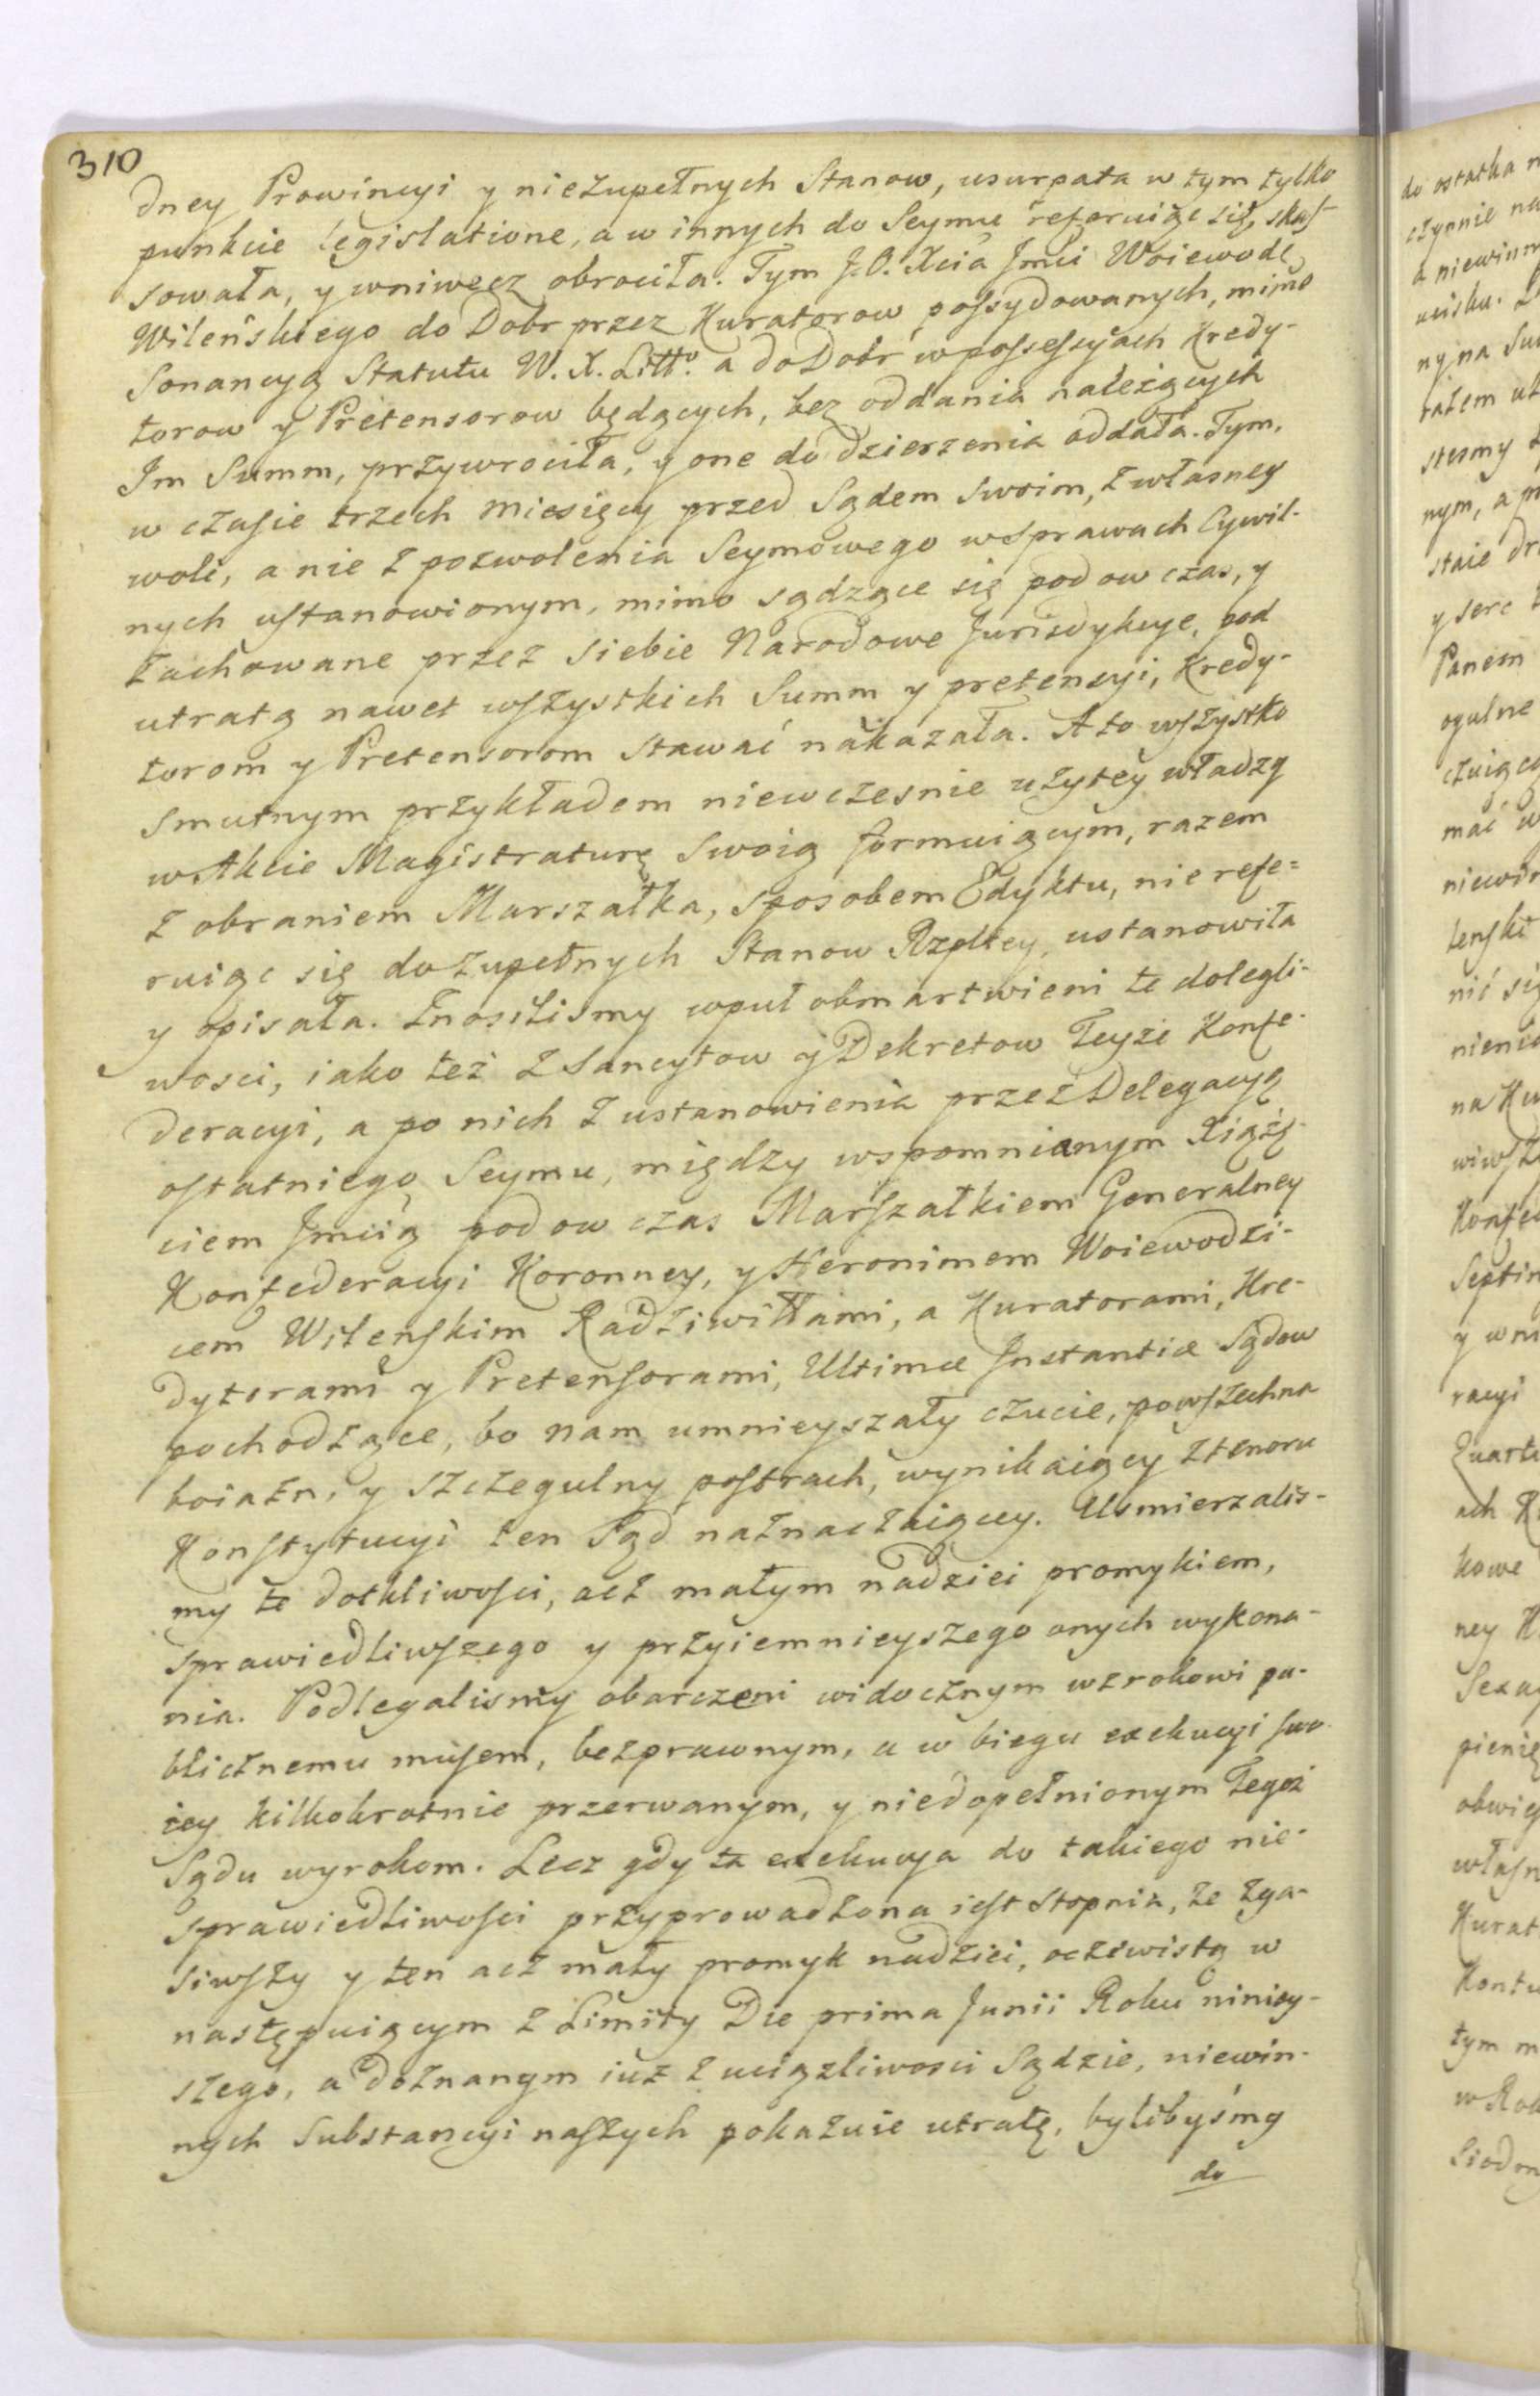 310
dney Prowincyi y niezupełnych Stanow, usurpata w tym tylko
punkcie legislatione, a w innych do Seymu referuiąc się, skas-
sowała, y wniwecz obrociła. Tym J.O. Xcia Jmci Woiewodę
Wileńskiego do Dobr przez Kuratorow possydowanych, mimo
Sonancyą Statutu W. X. Litto. a do Dobr w possessyach Kredy-
torow y Pretensorow będących, bez oddania należących
Im Summ, przywrociła, y one do dzierzenia oddała. Tym,
w czasie trzech miesięcy przed Sądem Swoim, z własney
woli, a nie z pozwolenia Seymowego w Sprawach Cywil-
nych ustanowionym, mimo sądzące się pod ow czas, y
zachowane przez siebie Narodowe Jurisdykcye, pod
utratą nawet wszystkich Summ y pretensyi, Kredy-
torom y Pretensorom stawać nakazała. A to wszystko
Smutnym przykładem niewczesnie użytey władzy
w Akcie Magistraturę Swoią formuiącym, razem
z obraniem Marszałka, Sposobem Edyktu, nie refe-
ruiąc się do Zupełnych Stanow Rzpltey, ustanowiła
y opisała. Znosilismy wpuł obmartwieni te dolegli-
wosci, iako też z Sancytow y Dekretow Teyże Konfe-
deracyi, a po nich z ustanowienia przez Delegacyą
ostatniego Seymu, między wspomnianym Xiąże-
ciem Jmcią pod ow czas Marszałkiem Generalney
Konfederacyi Koronney, y Heronimem Woiewodzi-
cem Wilenskim Radziwiłłami, a Kuratorami, Kre-
dytorami y Pretensorami, Ultimæ Instantiæ Sądow
pochodzące, bo nam umnieyszały czucie, powszechna
boiazn, y szczegulny postrach, wynikaiący z tenoru
Konstytucyi ten Sąd naznaczaiącey. Usmierzalis-
my te dotkliwosci, acz małym nadziei promykiem,
sprawiedliwszego y przyiemnieyszego onych wykona-
nia. Podlegalismy obarczeni widocznym wzrokowi pu-
blicznemu musem, bezprawnym, a w biegu exekucyi swo-
iey kilkokrotnie przerwanym, y niedopełnionym Tegoż
Sądu wyrokom. Lecz gdy ta exekucya do takiego nie-
sprawiedliwosci przyprowadzona iest stopnia, że zga-
siwszy y ten acz mały promyk nadziei, oczewistą w
następuiącym z Limity Die prima Junii Roku niniey-
szego, a doznanym iuż z uciązliwosci Sądzie, niewin-
nych Substancyi naszych pokazuie utratę, bylibyśmy
do